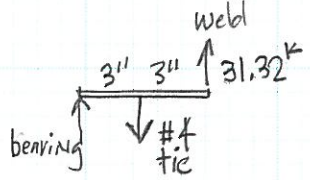 Weld
3" 3" 31.32ᵏ
bearing
#4
tie